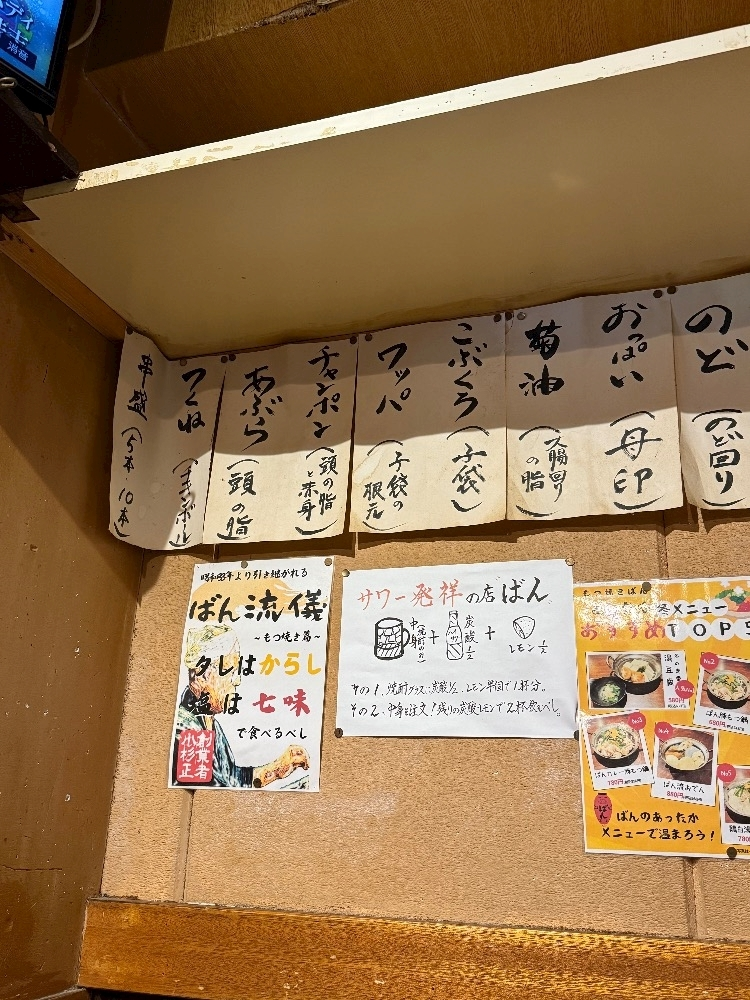 消音
のど(のど回り)
おっぱい(母印)
菊油(大腸回りの脂)
こぶくろ(子袋)
ワッパ(子袋の根元)
チャンポン(頭の脂と赤身)
あぶら(頭の脂)
つくね
串盛(5本、10本)
昭和33年より引き継がれる
ばん流儀
~もつ焼き篇~
タレはからし
塩は七味
で食べるべし
創業者
小杉正
サワー発祥の店"ばん"
中身(焼酎のみ)
+
炭酸1/2
+
レモン1/2
その1. 焼酎グラス:炭酸1/2、レモン半固で1杯分。
その2. 中身を注文!残りの炭酸とレモンで2杯飲むべし。
もつ焼きばん
冬メニュー
おすすめTOP5
湯豆腐
No2
ばん豚もつ鍋
No3
ばんカレー豚もつ鍋
780円
No4
ばん流おでん
No5
ばん
ばんのあったか
メニューで温まろう!